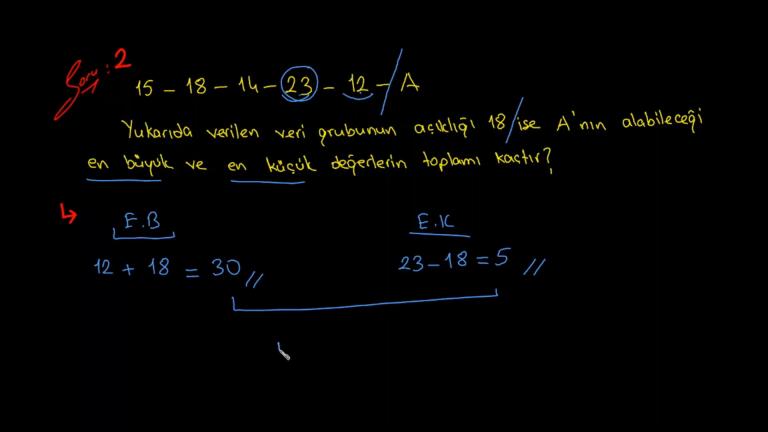 Soru: 2
15 - 18 - 14 - 23 - 12 - A
Yukarıda verilen veri grubunun açıklığı 18 ise A'nın alabileceği
en büyük ve en küçük değerlerin toplamı kaçtır?
E.B
E.K
12 + 18 = 30 //
23 - 18 = 5 //